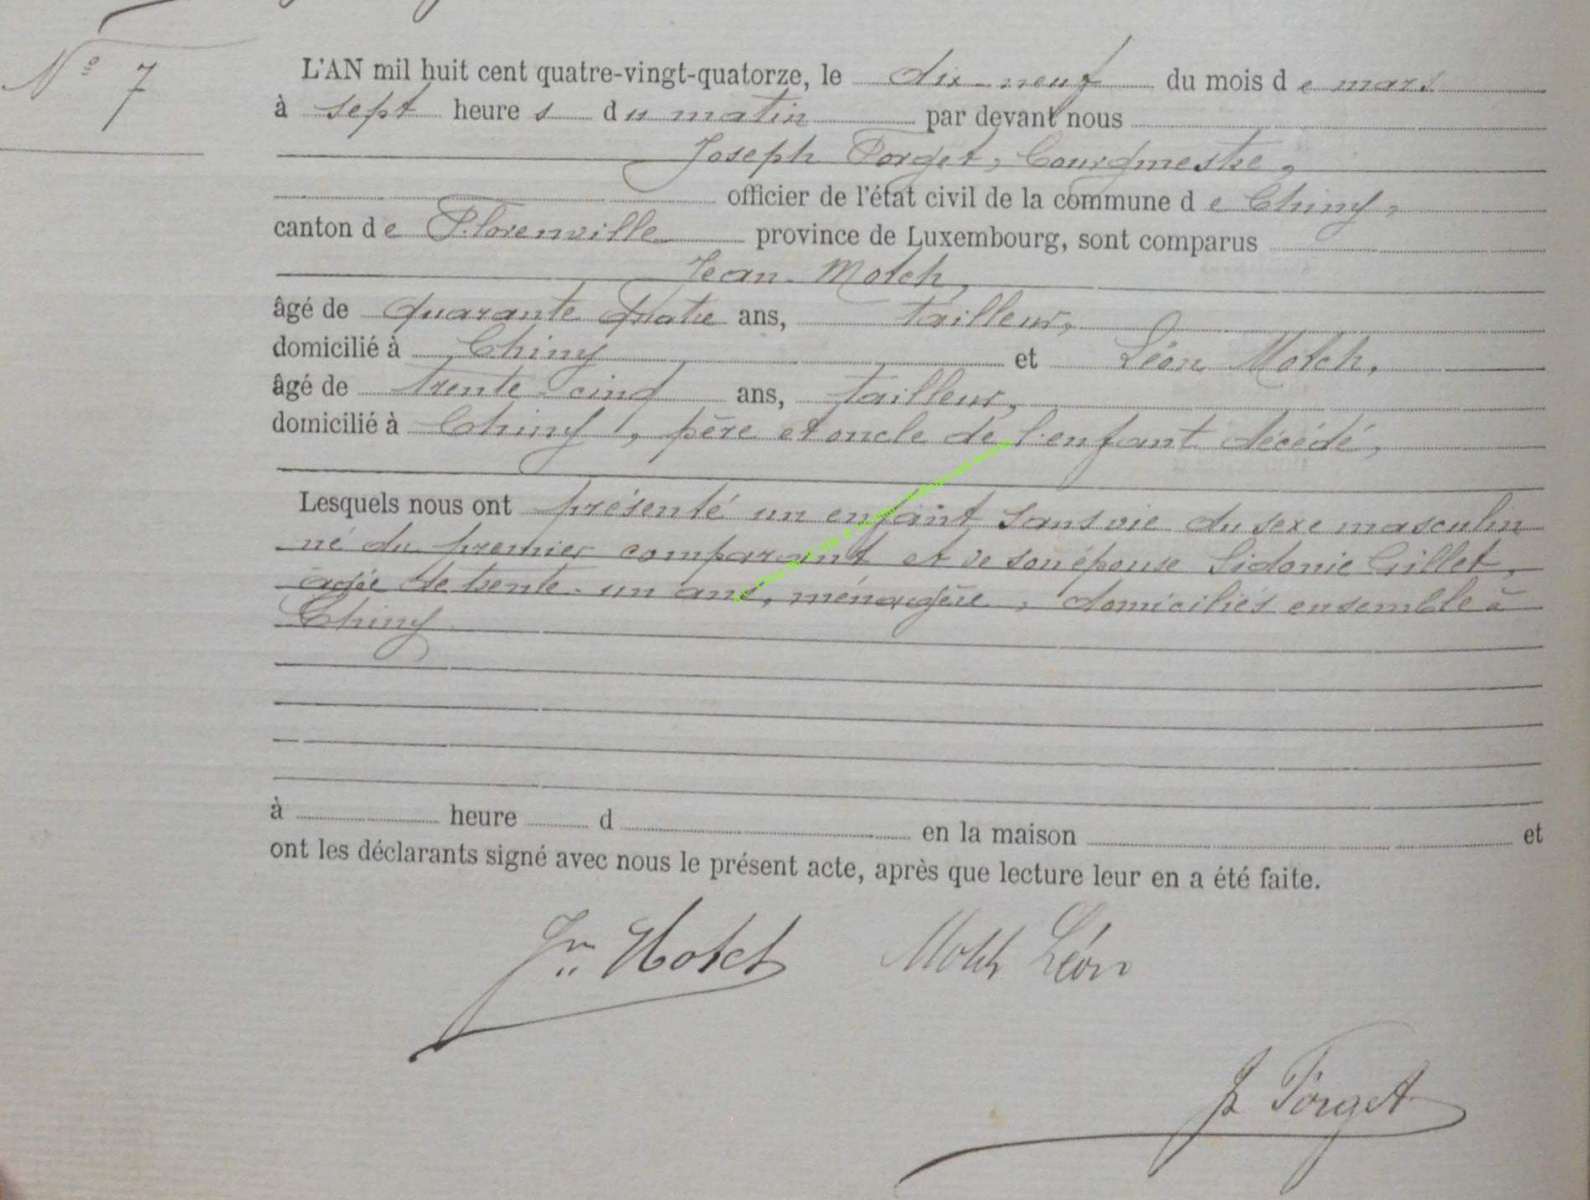 N° 7
L'AN mil huit cent quatre-vingt-quatorze, le dix-neuf du mois de mars
à sept heures du matin par devant nous
Joseph Forget, Bourgmestre,
officier de l'état civil de la commune de Chiny,
canton de Florenville province de Luxembourg, sont comparus
Jean Motch,
âgé de quarante quatre ans, tailleur,
domicilié à Chiny et Léon Motch,
âgé de trente-cinq ans, tailleur,
domicilié à Chiny, père et oncle de l'enfant décédé,
Lesquels nous ont présenté un enfant sans vie du sexe masculin
né du premier comparant et de son épouse Sidonie Gillet,
âgée de trente-un ans, ménagère, domiciliés ensemble à
Chiny
à heure d en la maison et
ont les déclarants signé avec nous le présent acte, après que lecture leur en a été faite.
Jn Motch Motch Léon
J Forget